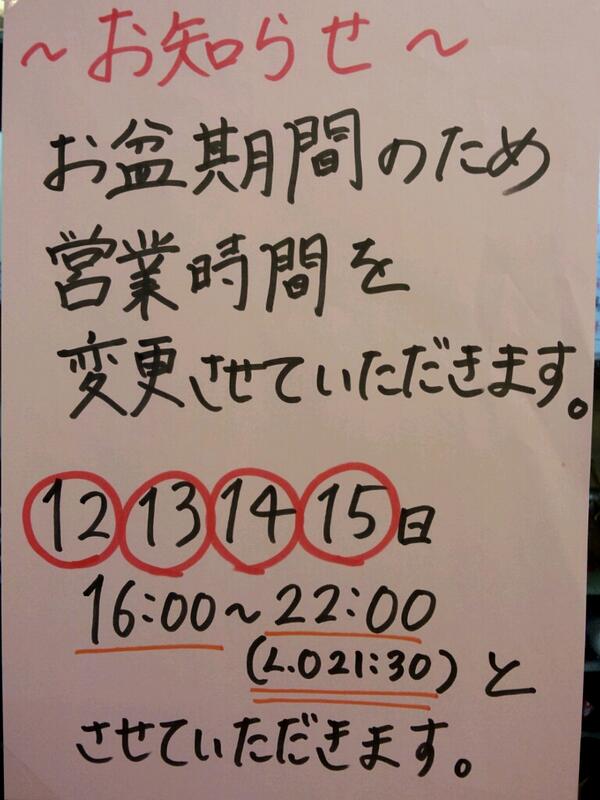 ~お知らせ~
お盆期間のため
営業時間を
変更させていただきます。
12 13 14 15日
16:00~22:00
(L.O21:30)と
させていただきます。